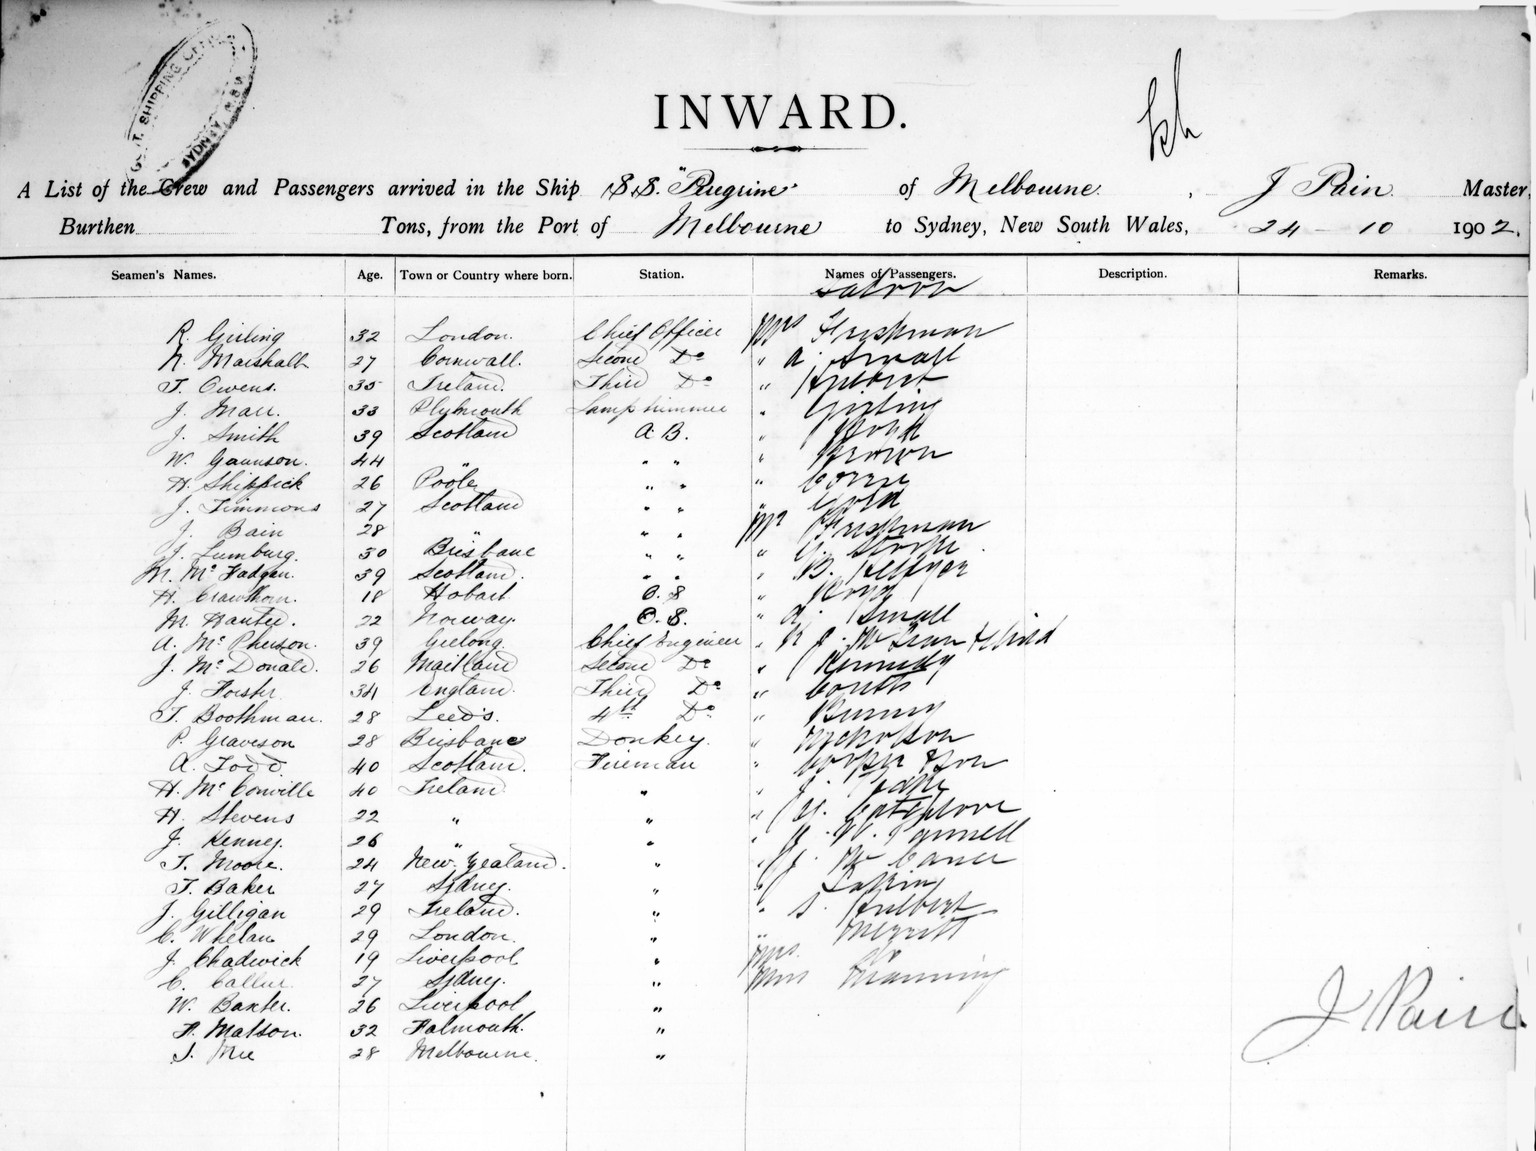 GOVT. SHIPPING OFFICE
SYDNEY N.S.W.
INWARD.
A List of the Crew and Passengers arrived in the Ship S.S. "Peregrine" of Melbourne, J Pain Master,
Burthen Tons, from the Port of Melbourne to Sydney, New South Wales, 24 - 10 1902.
Seamen's Names. Age. Town or Country where born. Station. Names of Passengers. Description. Remarks.
Saloon
R. Girling 32 London. Chief Officer Mrs Freshman
N. Marshall 27 Cornwall. Second Do " A. Small
T. Owens. 35 Ireland. Third Do "
J. Marr. 33 Plymouth Lamptrimmer " Girling
J. Smith 39 Scotland A.B. "
W. Gaunson. 44 " " " " Brown
H. Shippick 26 Poole " " "
J. Timmons 27 Scotland " " "
J. Bain 28 " " " Mr Freshman
J. Lumburg. 30 Brisbane " " "
M. McFadgan. 39 Scotland. " " " B.
H. Crawthorn. 18 Hobart O.S "
M. Hunter. 22 Norway. O.S. " A. Small
A. McPherson. 39 Geelong. Chief Engineer "
J. McDonald. 26 Maitland Second Do " Kennedy
J. Forster 34 England. Third Do "
T. Boothman. 28 Leeds. 4th Do "
P. Graveson 28 Brisbane Donkey. " Nicholson
A. Todd 40 Scotland. Fireman " Cooper & Son
H. McConville 40 Ireland " " J.
H. Stevens 22 " " "
J. Kenney. 26 " " " W.
T. Moore. 24 New Zealand. " " J.
T. Baker 27 Sydney. " "
J. Gilligan 29 Ireland. " " S. Hulbert
C. Whelan 29 London. " " Merritt
J. Chadwick 19 Liverpool " Mrs. Do
C. Callur 27 Sydney. " Miss Manning
W. Baxter. 26 Liverpool "
F. Matson. 32 Falmouth. "
28 Melbourne. "
J Pain